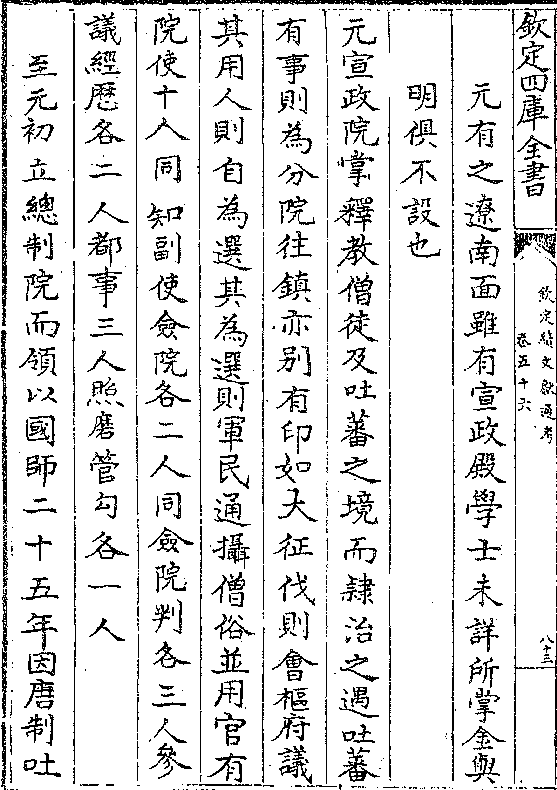 欽定四庫全書
欽定續文獻通考
卷五十六
八十三
元有之遼南面雖有宣政殿學士未詳所掌金與
明俱不設也
元宣政院掌釋教僧徒及吐蕃之境而𨽻治之遇吐蕃
有事則為分院往鎮亦别有印如大征伐則會樞府議
其用人則自為選其為選則軍民通攝僧俗並用官有
院使十人同知副使僉院各二人同僉院判各三人參
議經歴各二人都事三人照磨管勾各一人
至元初立總制院而領以國師二十五年因唐制吐